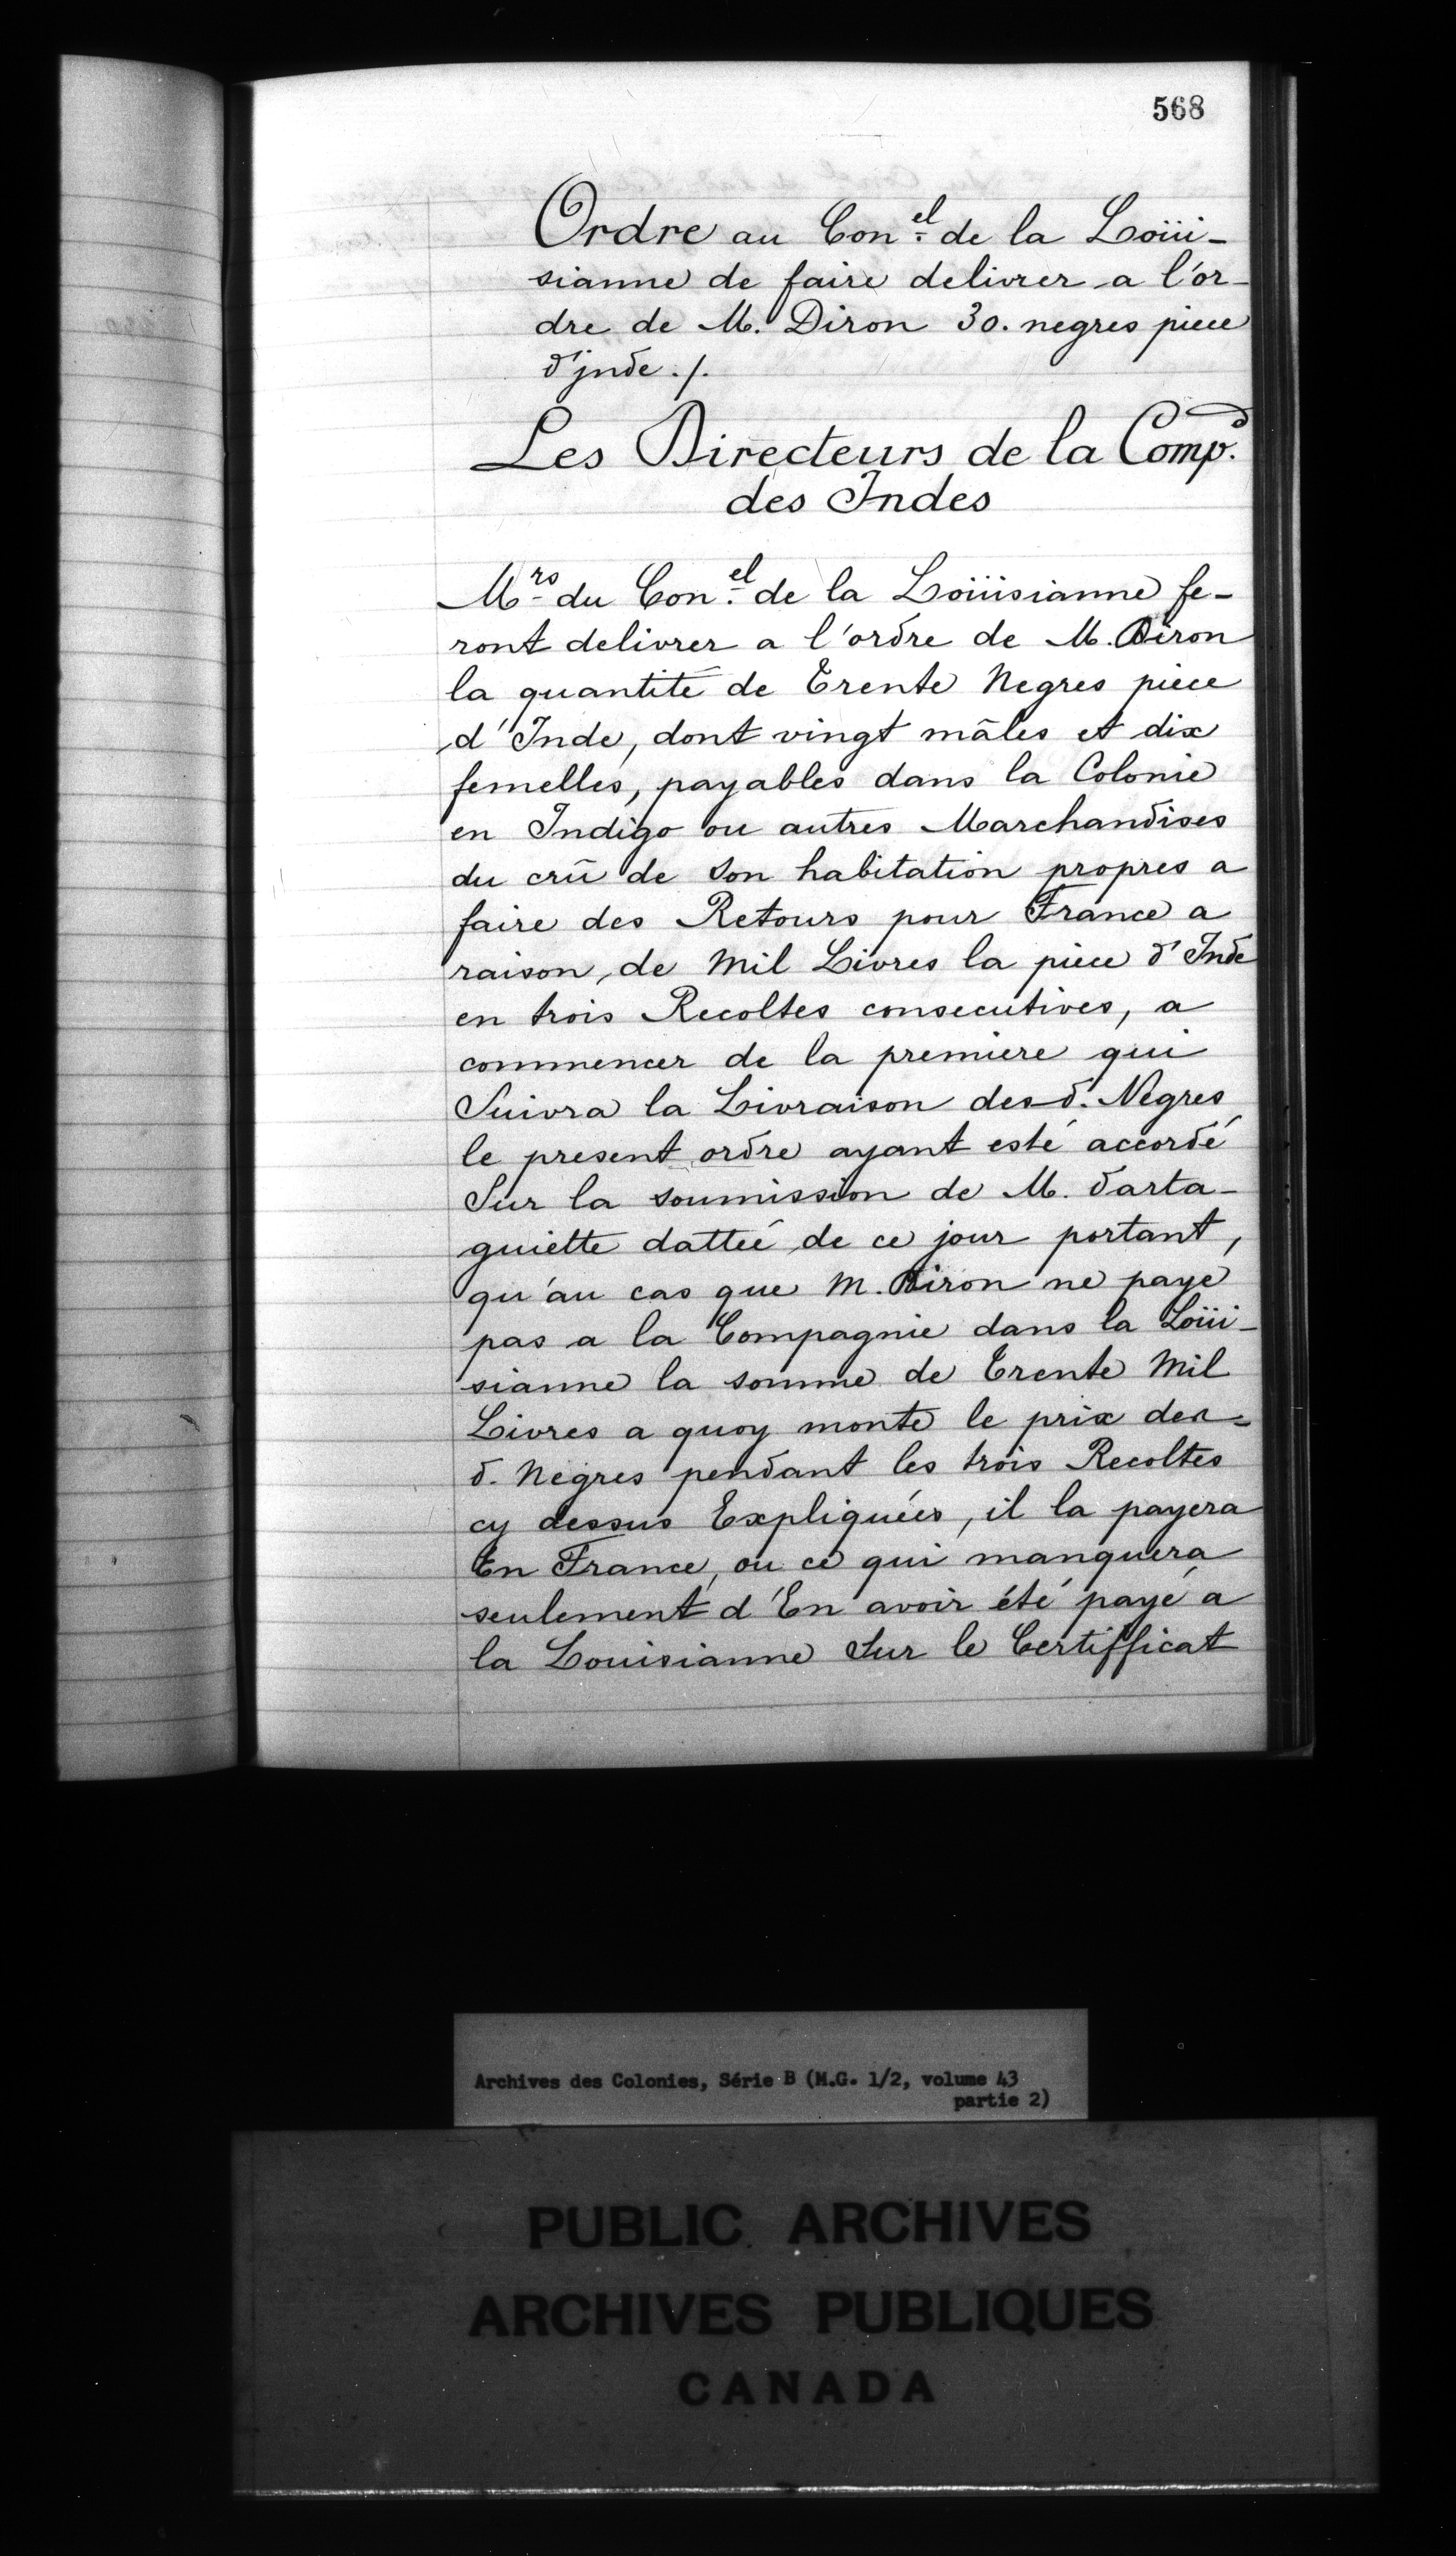 568
Ordre au Con.el de la Loüi-
sianne de faire delivrer a l'or-
dre de M. Diron 30. negres piece
d'jnde ./.
Les Directeurs de la Comp.
des Indes
Mrs du Con.el de la Loüisianne fe-
ront delivrer a l'ordre de M. Diron
la quantité de Trente Negres piece
d'Inde, dont vingt mâles et dix
femelles, payables dans la Colonie
en Indigo ou autres Marchandises
du crû de son habitation propres a
faire des Retours pour France a
raison de Mil Livres la piece d'Inde
en trois Recoltes consecutives, a
commencer de la premiere qui
Suivra la Livraison des d. Negres
le present ordre ayant esté accordé
Sur la soumission de M. darta-
guiette dattée de ce jour portant,
qu'au cas que M. Diron ne paye
pas a la Compagnie dans la Loüi-
sianne la somme de Trente Mil
Livres a quoy monte le prix des-
d. Negres pendant les trois Recoltes
cy dessus Expliquées, il la payera
En France, ou ce qui manquera
seulement d'En avoir été payé a
la Louisianne Sur le Certifficat
Archives des Colonies, Série B (M.G. 1/2, volume 43
partie 2)
PUBLIC ARCHIVES
ARCHIVES PUBLIQUES
CANADA